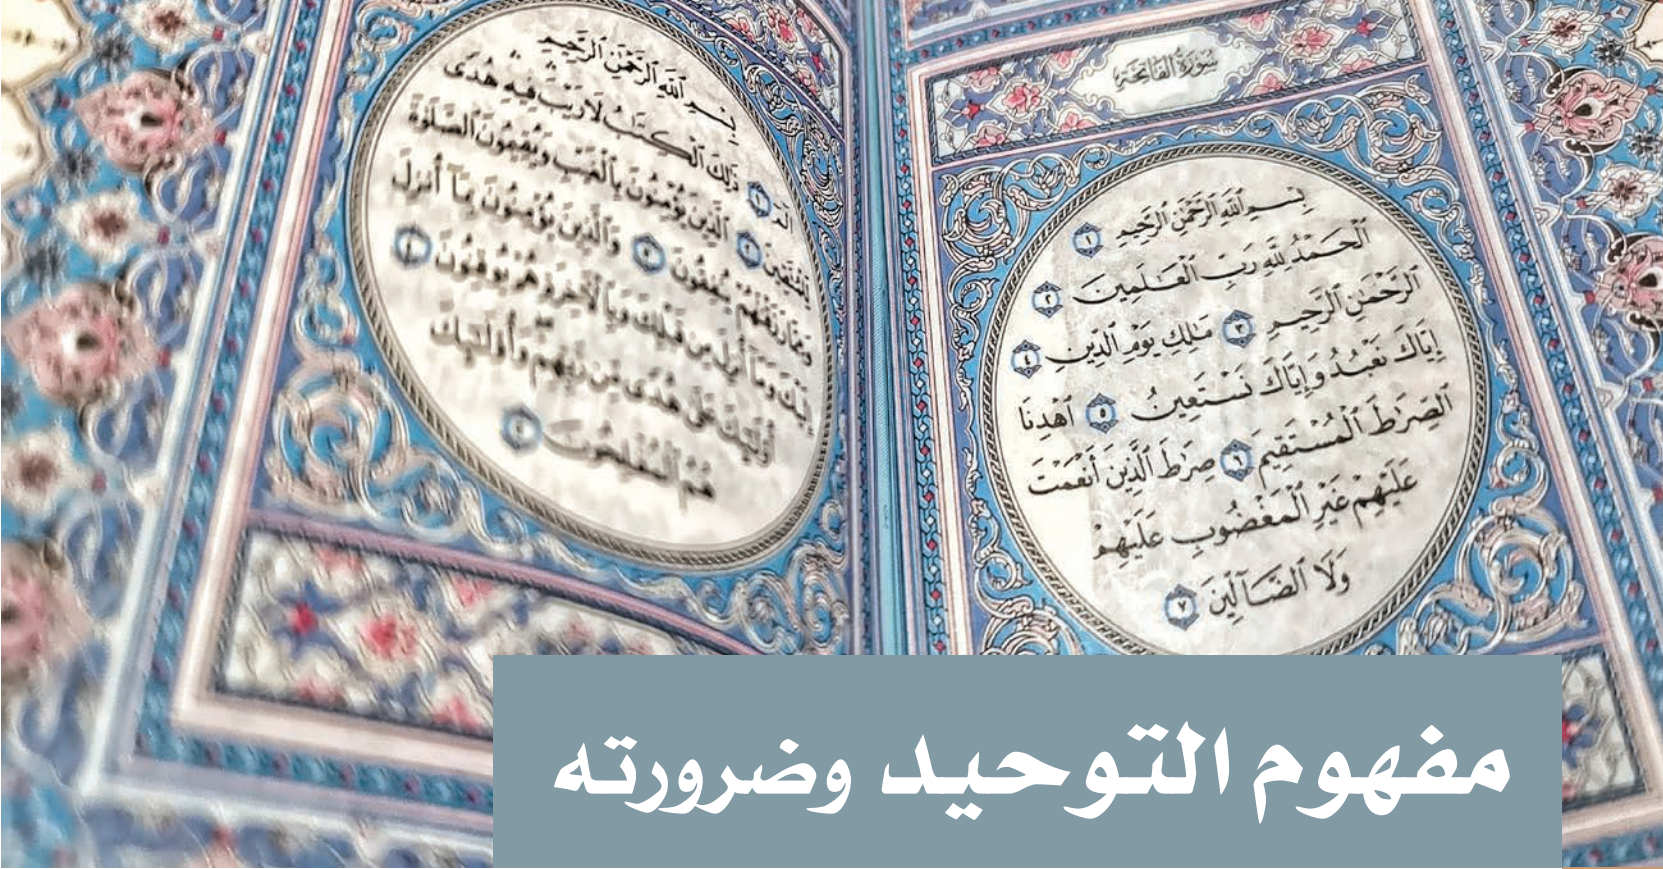 سُورَةُ الْفَاتِحَةِ
بِسْمِ ٱللَّهِ ٱلرَّحْمَٰنِ ٱلرَّحِيمِ ١
ٱلْحَمْدُ لِلَّهِ رَبِّ ٱلْعَٰلَمِينَ ٢
ٱلرَّحْمَٰنِ ٱلرَّحِيمِ ٣ مَٰلِكِ يَوْمِ ٱلدِّينِ ٤
إِيَّاكَ نَعْبُدُ وَإِيَّاكَ نَسْتَعِينُ ٥ ٱهْدِنَا
ٱلصِّرَٰطَ ٱلْمُسْتَقِيمَ ٦ صِرَٰطَ ٱلَّذِينَ أَنْعَمْتَ
عَلَيْهِمْ غَيْرِ ٱلْمَغْضُوبِ عَلَيْهِمْ
وَلَا ٱلضَّآلِّينَ ٧
بِسْمِ ٱللَّهِ ٱلرَّحْمَٰنِ ٱلرَّحِيمِ
الٓمٓ ١ ذَٰلِكَ ٱلْكِتَٰبُ لَا رَيْبَ فِيهِ هُدًى
لِّلْمُتَّقِينَ ٢ ٱلَّذِينَ يُؤْمِنُونَ بِٱلْغَيْبِ وَيُقِيمُونَ ٱلصَّلَوٰةَ
وَمِمَّا رَزَقْنَٰهُمْ يُنفِقُونَ ٣ وَٱلَّذِينَ يُؤْمِنُونَ بِمَآ أُنزِلَ
إِلَيْكَ وَمَآ أُنزِلَ مِن قَبْلِكَ وَبِٱلْءَاخِرَةِ هُمْ يُوقِنُونَ ٤
أُو۟لَٰٓئِكَ عَلَىٰ هُدًى مِّن رَّبِّهِمْ وَأُو۟لَٰٓئِكَ
هُمُ ٱلْمُفْلِحُونَ ٥
مفهوم التوحيد وضرورته